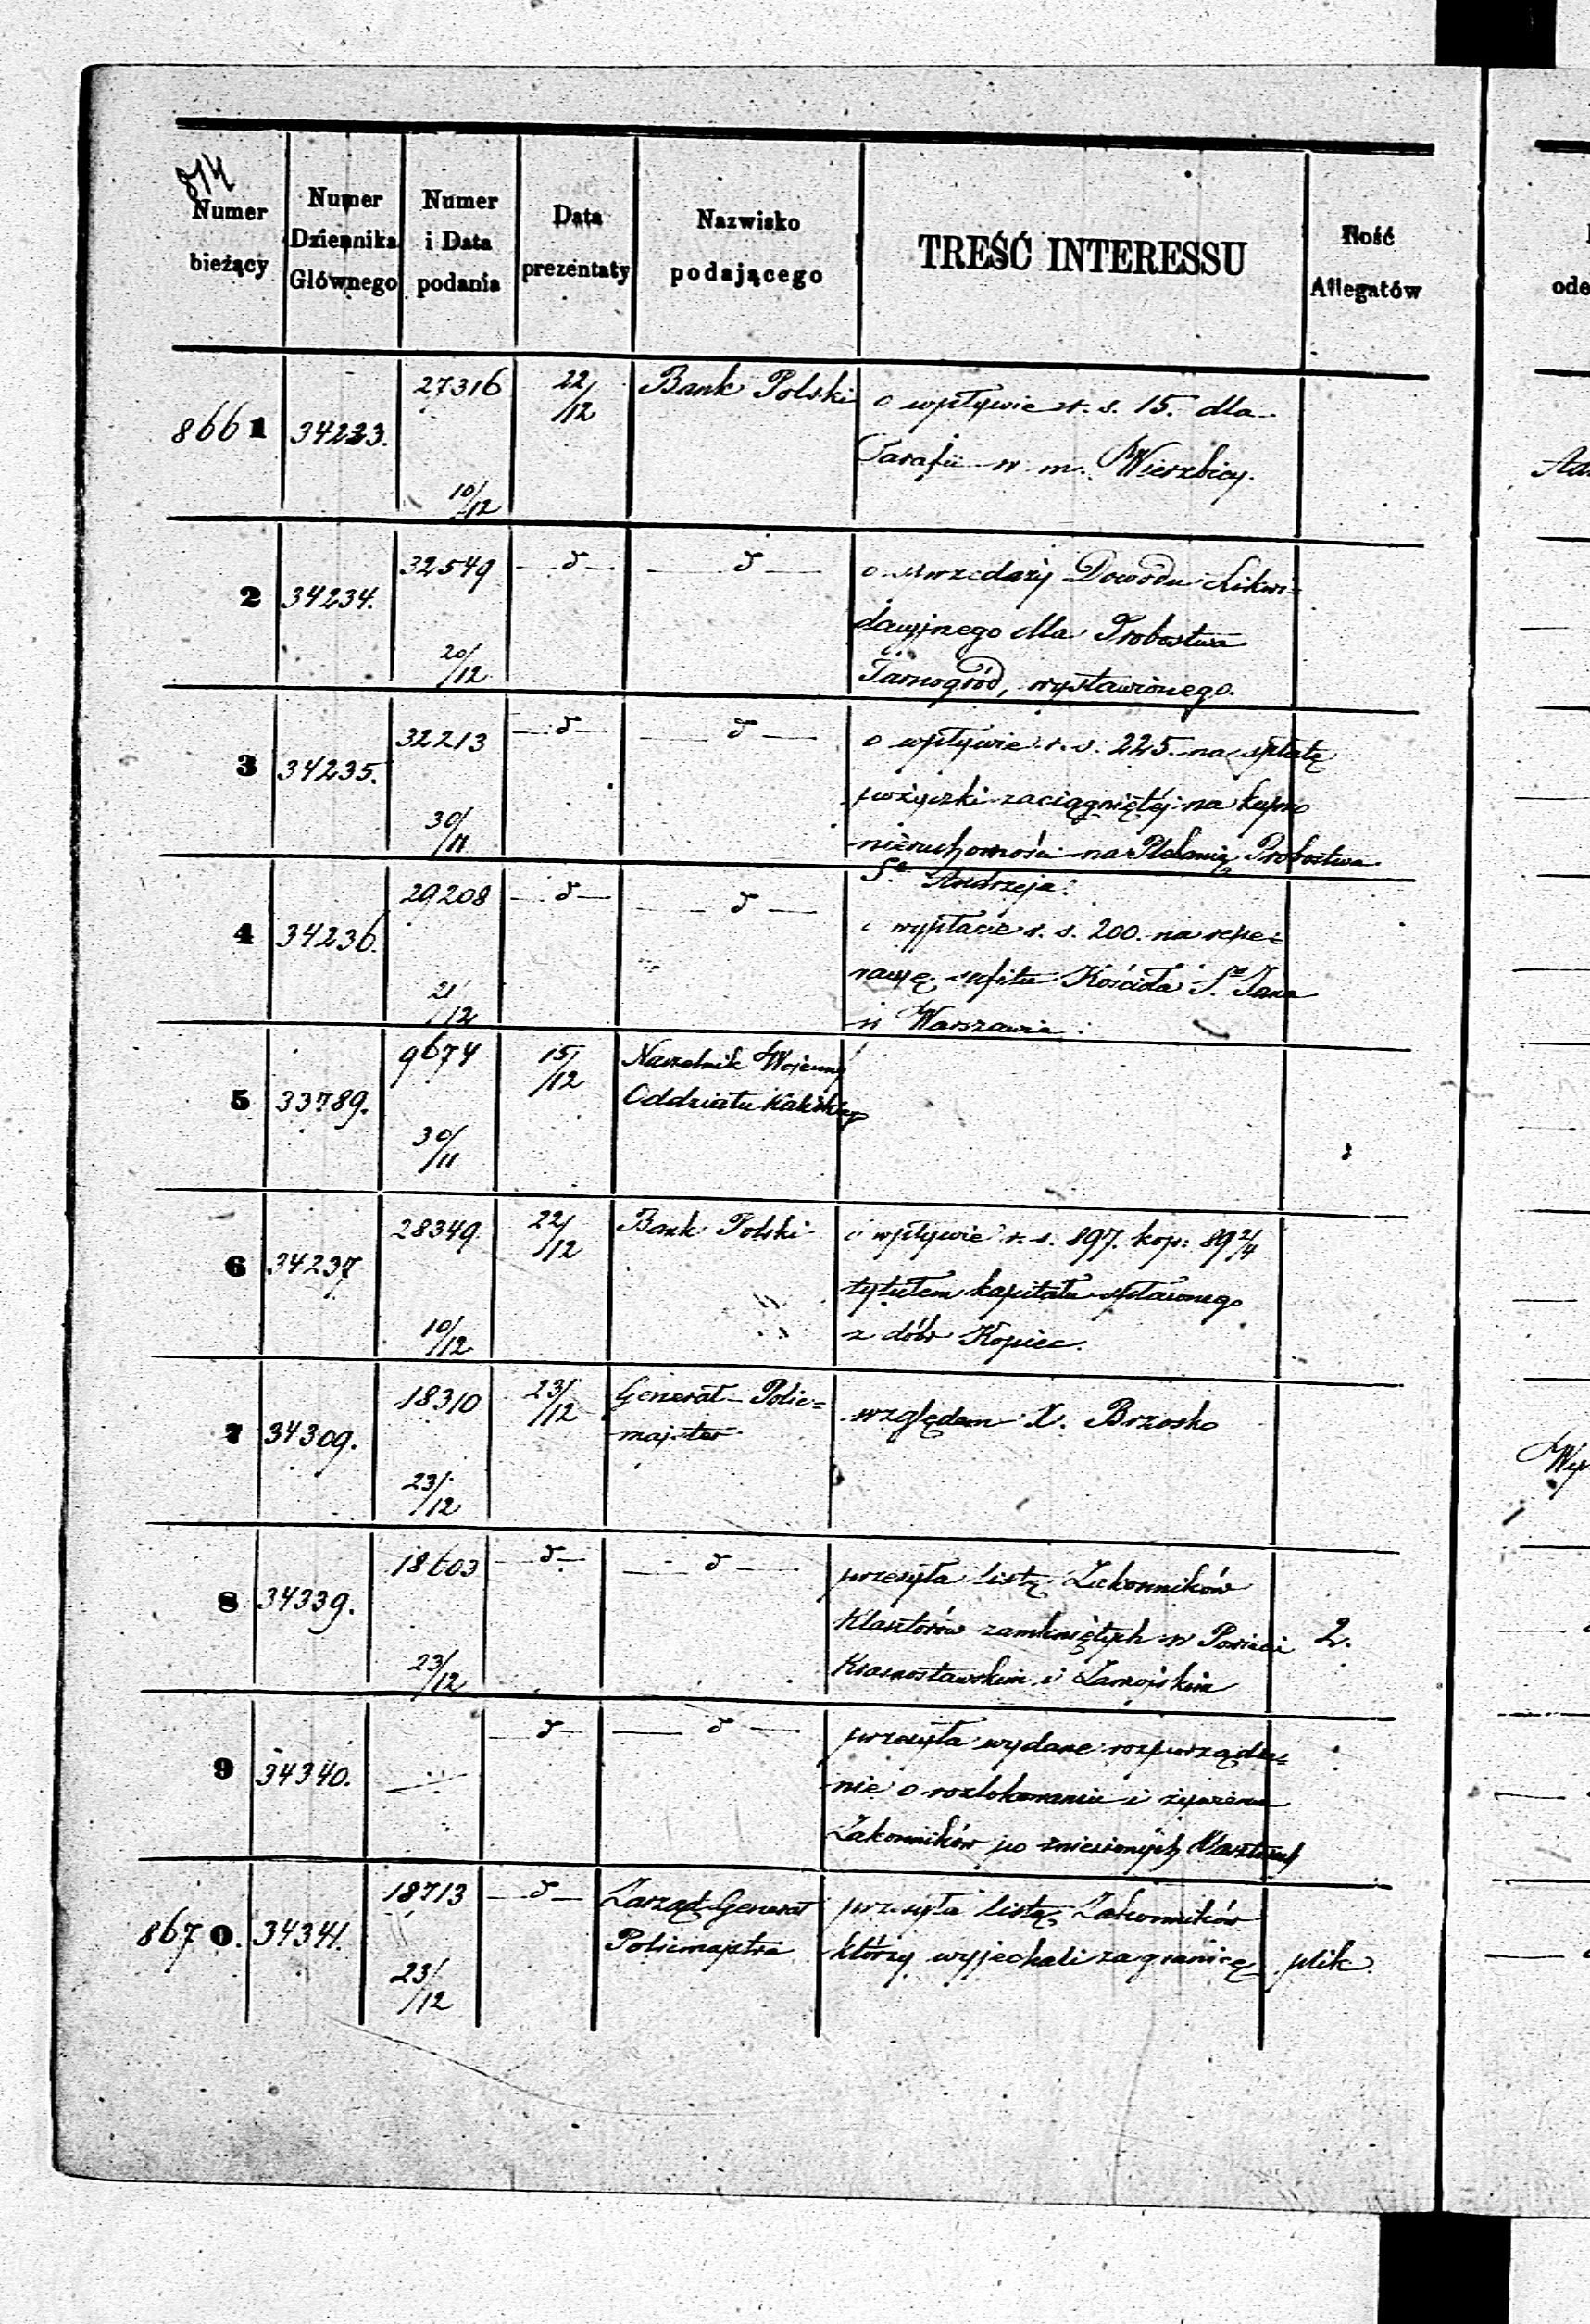 814
Numer bieżący
Numer Dziennika Głównego
Numer i Data podania
Data prezentaty
Nazwisko podającego
TREŚĆ INTERESSU
Ilość Allegatów
8661 34233. 27316 10/12 22/12 Bank Polski
o wpływie r. s. 15. dla
Parafii w m. Wierzbicy.
2 34234. 32549 20/12 — d — — d —
o sprzedaży Dowodu Likwi=
dacyjnego dla Probostwa
Tarnogród, wystawionego.
3 34235. 32213 30/11 — d — — d —
o wpływie r. s. 225. na spłatę
pożyczki zaciągniętéj na kupno
nieruchomości na Plebanią Probostwa
Sgo Andrzeja.
4 34236. 29208 21/12 — d — — d —
o wypłacie r. s. 200. na repe=
racyę sufitu Kościoła Sgo Jana
w Warszawie.
5 33789. 9674 30/11 15/12 Naczelnik Wojenny
Oddziału Kaliskiego
6 34237 28349. 10/12 22/12 Bank Polski
o wpływie r. s. 897. kop: 89 2/4
tytułem kapitału spłaconego
z dóbr Kopiec.
7 34309. 18310 23/12 23/12 Generał-Polic=
majster
względem X. Brzosko
8 34339. 18603 23/12 — d — — d —
przesyła listę Zakonników
Klasztorów zamkniętych w Powiecie
Krasnostawskim i Zamojskim
2.
9 34340. — d — — d —
przesyła wydane rozporządze=
nie o rozlokowaniu i życzeniu
Zakonników po zniesionych Klasztorach
8670. 34341. 18713 23/12 — d — Zarząd Generał
Policmajstra
przesyła listę Zakonników
którzy wyjechali za granicę
plik.
ode